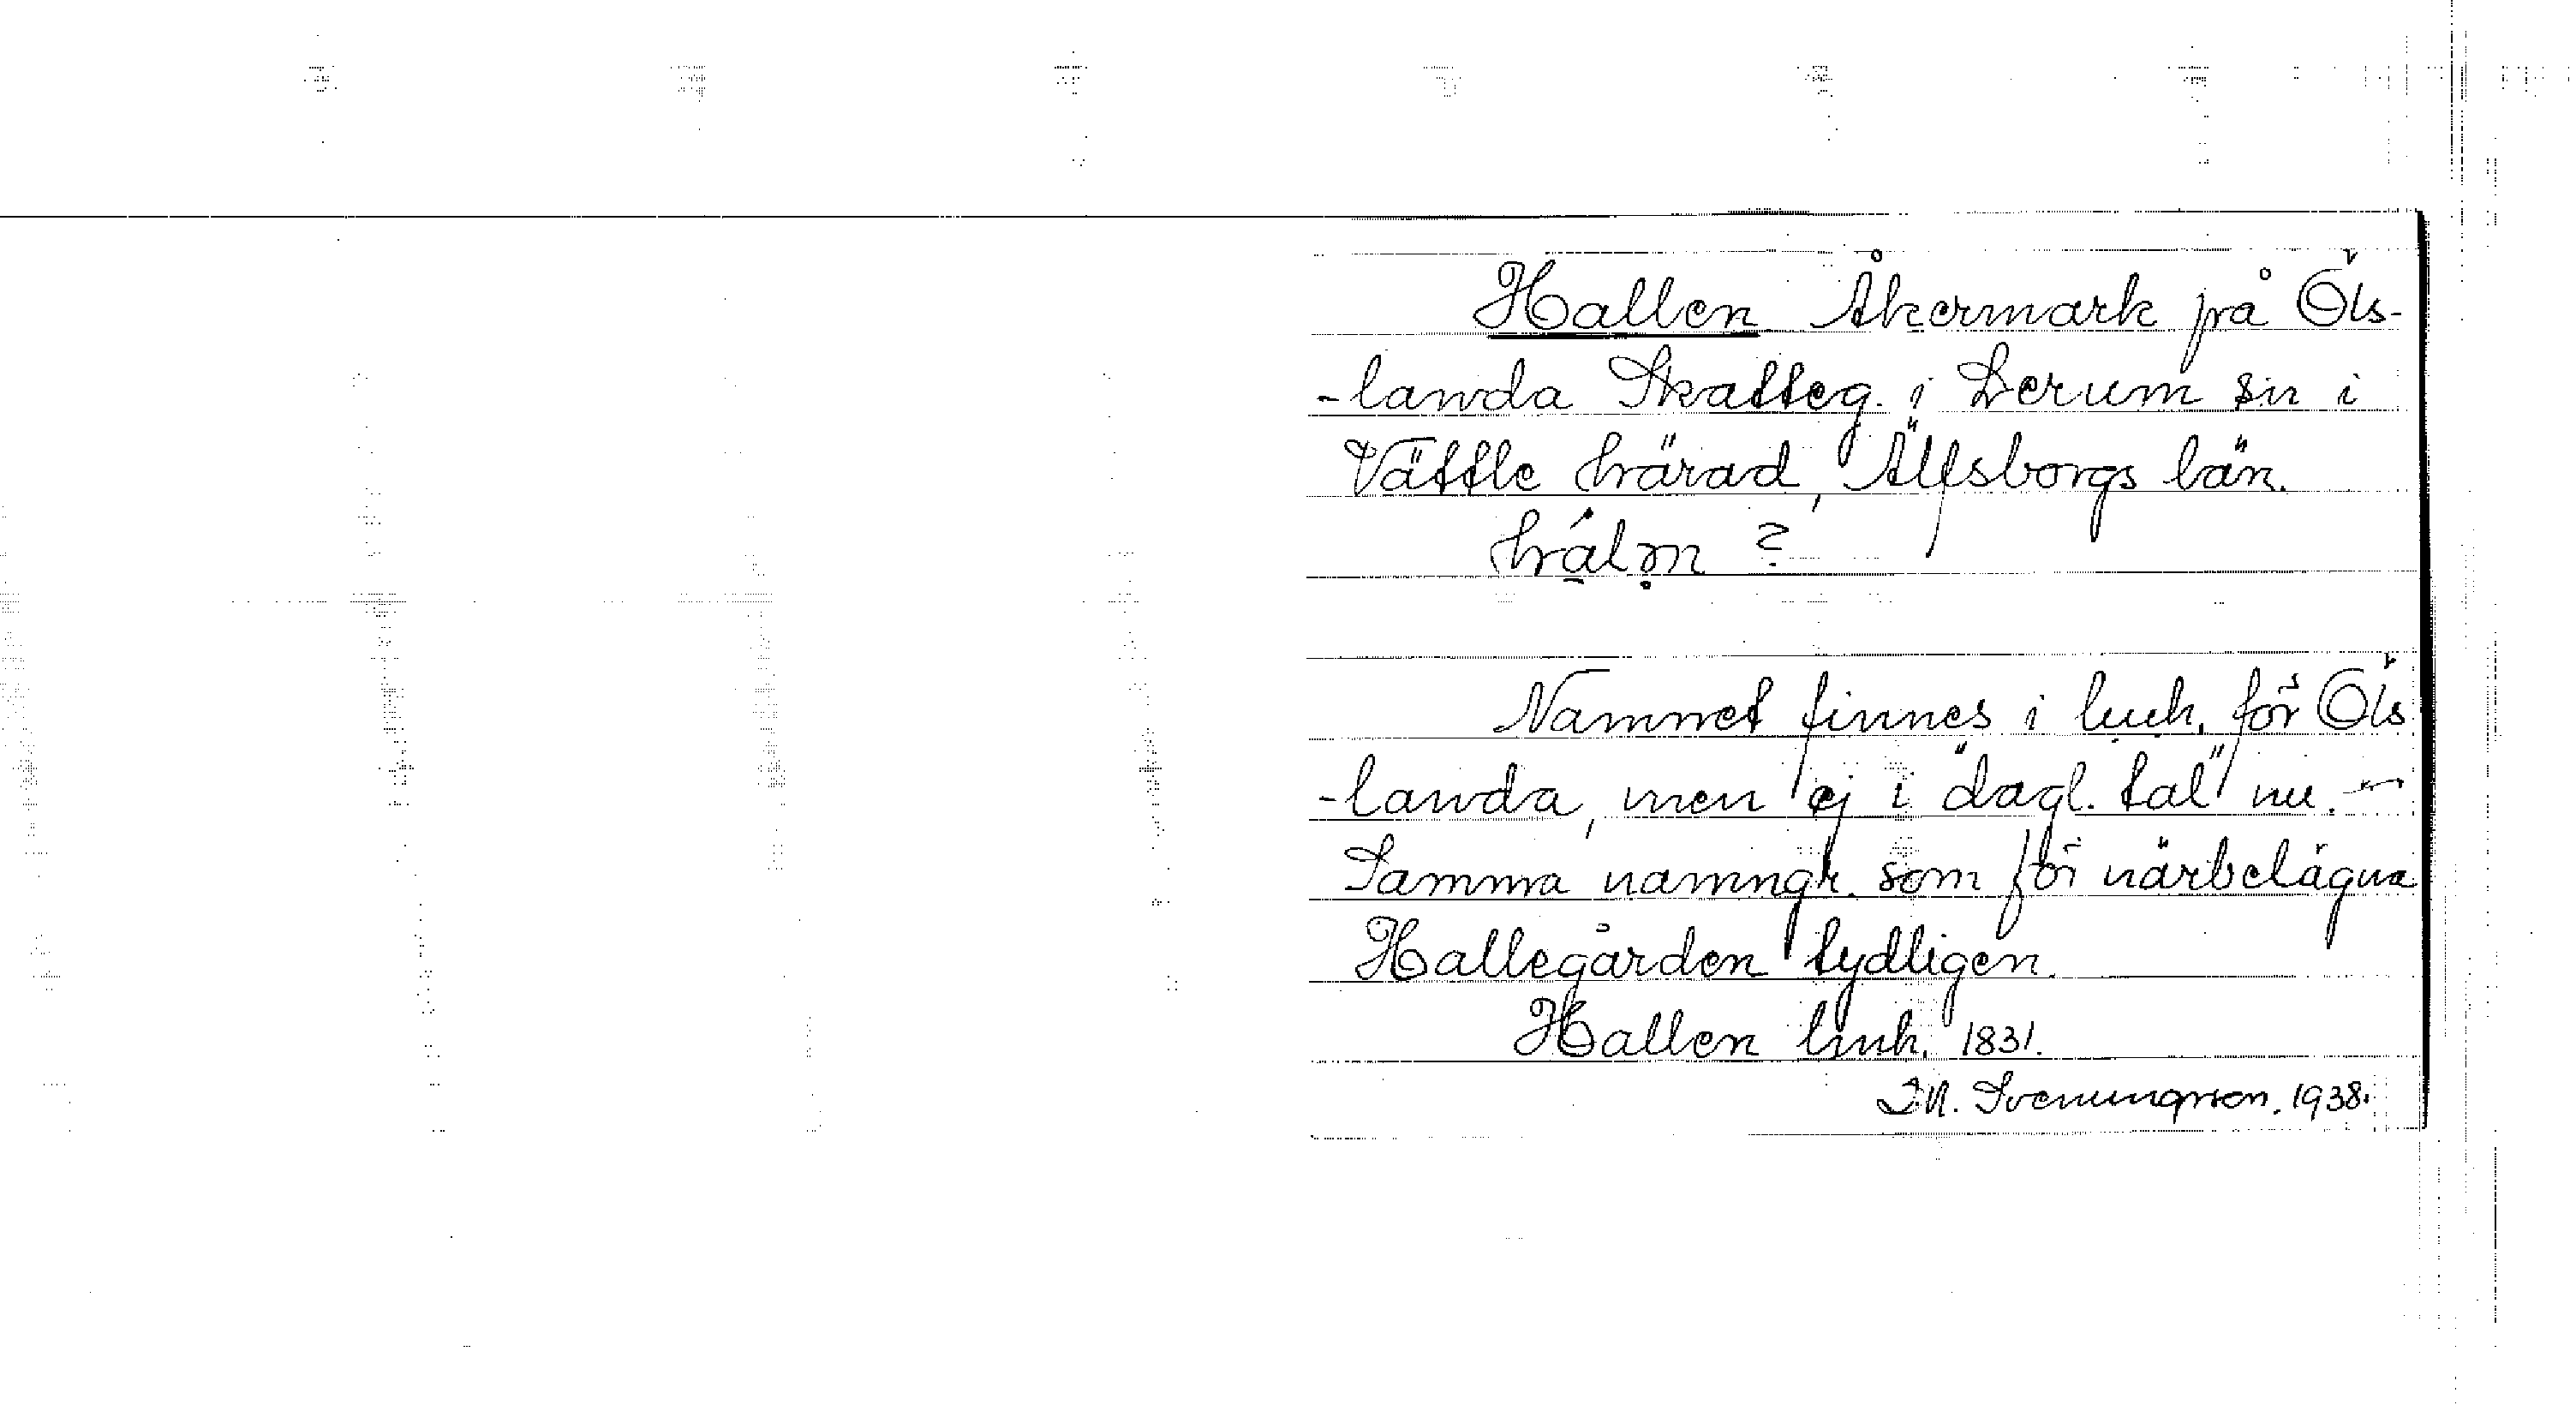 Hallen Åkermark på Öls-
-landa Skatteg. i Lerum sn i
Vättle härad, Älfsborgs län.
hálņ ?
Namnet finnes i lmh. för Öls
-landa, men ej i "dagl. tal" nu. —
Samma namngr. som för närbelägna
Hallegården tydligen.
Hallen lmh. 1831.
Svenungsson, 1938.